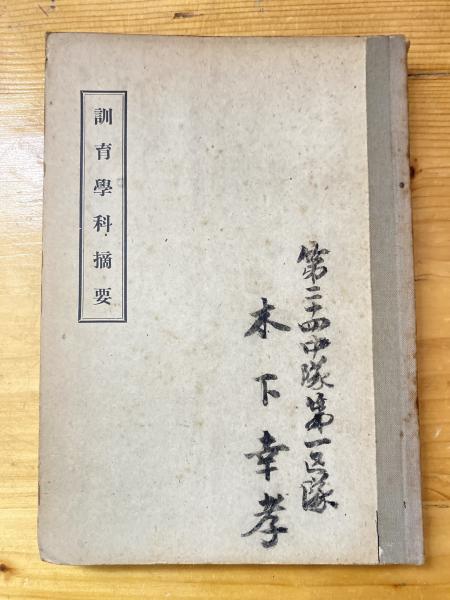 訓育學科摘要
第二十四中隊第一区隊
木下幸孝